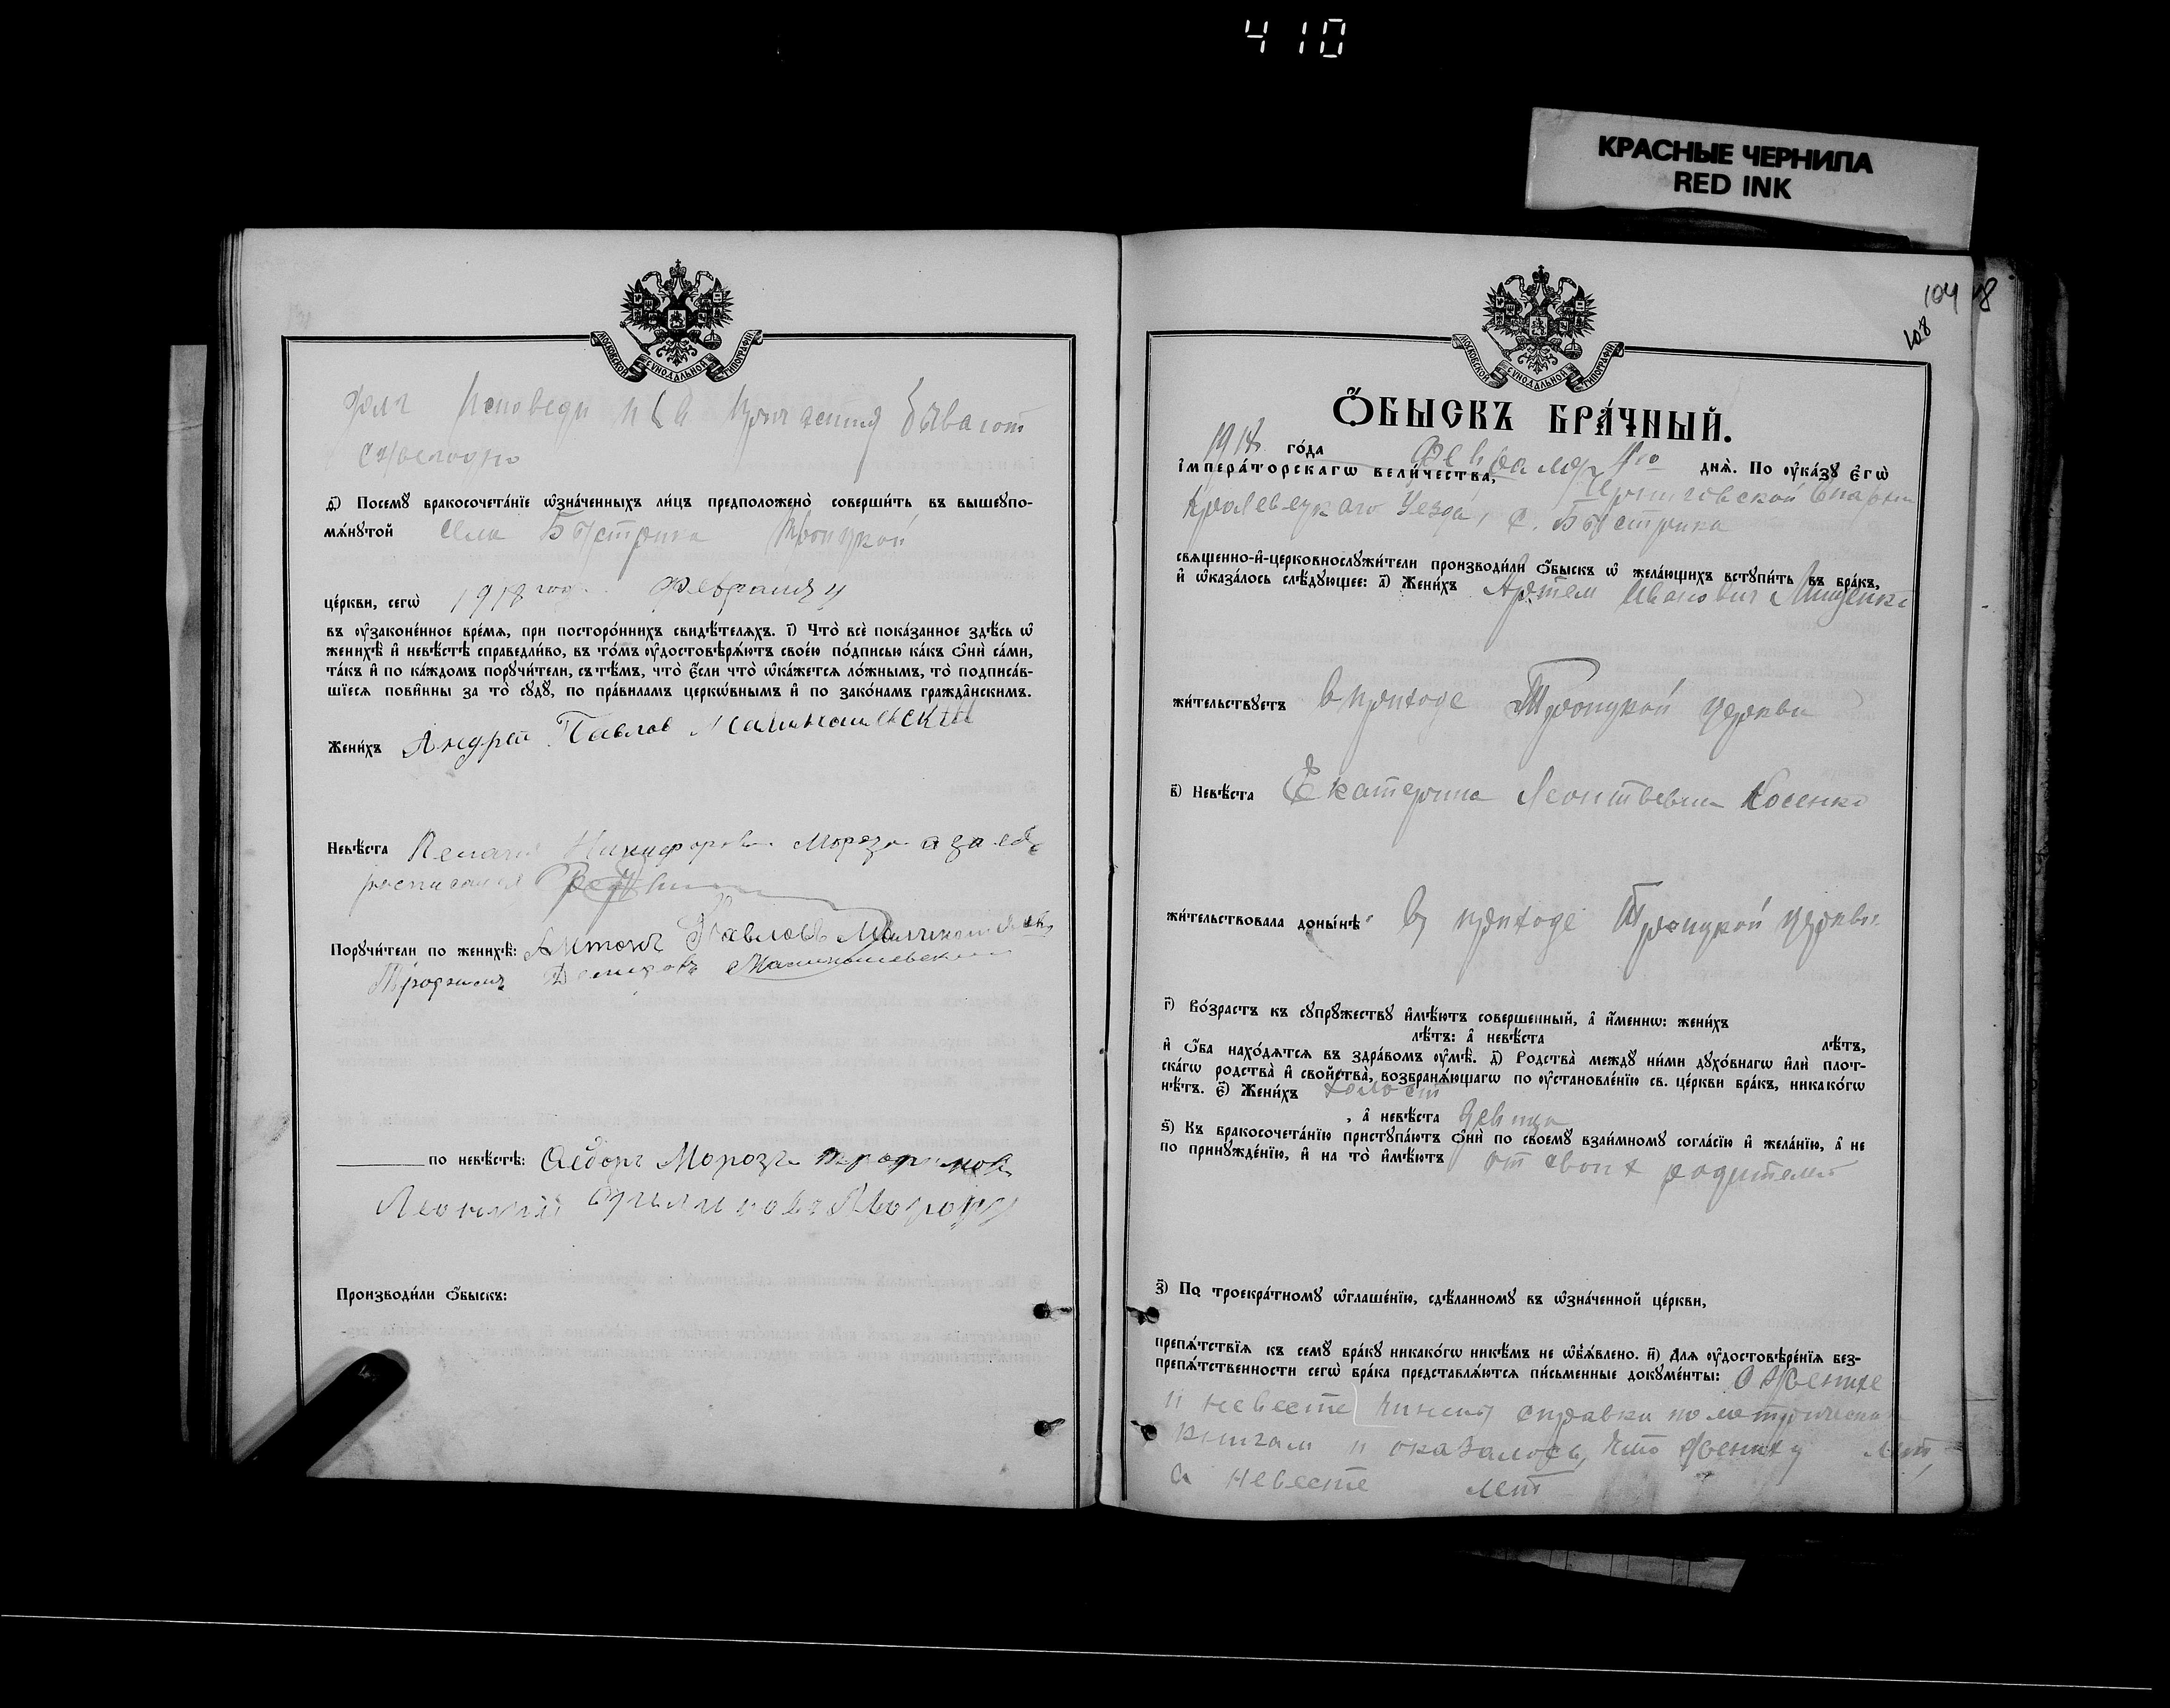 410
КРАСНЫЕ ЧЕРНИЛА
RED INK
МОСКОВСКОЙ СѴНОДАЛЬНОЙ ТИПОГРАФІИ
у Исповеди и Св Причастия бывают
ежегодно
д҃і) Посемꙋ̀ бракосочета́нїе ѡ҆зна́ченныхъ ли́цъ предположено̀ соверши́ть въ вышеꙋпо-
мѧ́нꙋтой села Быстрика Троицкой
це́ркви, сегѡ̀ 1918 года Февраля 4
въ ᲂу҆зако́ненное вре́мѧ, при посторо́ннихъ свидѣ́телѧхъ. і҃) Что̀ всѐ пока́занное здѣ́сь ѡ҆
женихѣ̀ и҆ невѣ́стѣ справедли́во, въ то́мъ ᲂу҆достовѣрѧ́ютъ свое́ю по́дписью ка́къ ѻ҆нѝ са́ми,
та́къ и҆ по ка́ждомъ порꙋчи́тели, съ тѣ́мъ, что̀ є҆́сли что̀ ѡ҆ка́жется ло́жнымъ, то̀ подписа́в-
шїеся пови́нны за то̀ сꙋдꙋ̀, по пра́виламъ церкѡ́внымъ и҆ по зако́намъ гражда̂нскимъ.
Жени́хъ Андрей Павлов
Невѣ́ста Никифоровна Мороз а за её
расписался
Порꙋчи́тели по женихѣ̀: Антонъ Павловъ
Трофимъ Демидовъ Малиношевский
по невѣ́стѣ: Федоръ Морозъ
Леонтий
Производи́ли ѻ҆́быскъ:
104
108
МОСКОВСКОЙ СѴНОДАЛЬНОЙ ТИПОГРАФІИ
Ѻ҆́БЫСКЪ БРА́ЧНЫЙ.
1918 го́да Февраля дня̀. По ᲂу҆ка́зꙋ Є҆гѡ̀
І҆мпера́торскагѡ вели́чества, Черниговской Епархии
Кролевецкаго Уезда, с. Быстрика
свѧще́нно-и҆-церковнослꙋжи́тели производи́ли ѻ҆́быскъ ѡ҆ жела́ющихъ встꙋпи́ть въ бра́къ,
и҆ ѡ҆каза́лось слѣ́дꙋющее: а҃) Жени́хъ Артем Иванович Мищенко
жи́тельствꙋетъ в приходе Троицкой церкви
в҃) Невѣ́ста Екатерина Леонтьевна Косенко
жи́тельствовала доны́нѣ в приходе Троицкой церкви
г҃) Во́зрастъ къ сꙋпрꙋ́жествꙋ и҆мѣ́ютъ соверше́нный, а҆ и҆́меннѡ: жени́хъ
лѣ́тъ: а҆ невѣ́ста лѣ́тъ,
и҆ ѻ҆́ба нахо́дѧтсѧ въ здра́вомъ ᲂу҆мѣ̀. д҃) Родства̀ междꙋ̀ ни́ми дꙋхо́внагѡ и҆лѝ пло́т-
скагѡ родства̀ и҆ сво́йства̀, возбранѧ́ющагѡ по ᲂу҆становле́нїю св. це́ркви бра́къ, никако́гѡ
нѣ́тъ. є҃) Жени́хъ холост
, а҆ невѣ́ста девица
ѕ҃) Къ бракосочета́нїю пристꙋпа́ютъ ѻ҆нѝ по своемꙋ̀ взаи́мномꙋ согла́сїю и҆ жела́нїю, а҆ не
по принꙋжде́нїю, и҆ на то̀ и҆мѣ́ютъ от своих родителей
з҃) По троекра́тномꙋ ѡ҆глаше́нїю, сдѣ́ланномꙋ въ ѡ҆зна́ченной це́ркви,
препѧ́тствїѧ къ семꙋ̀ бра́кꙋ никако́гѡ никѣ́мъ не ѡ҆б̾ѧ́влено. и҃) Для ᲂу҆достовѣре́нїѧ без-
препѧ́тственности сегѡ̀ бра́ка представлѧ́ютсѧ пи́сьменные докꙋме́нты: О женихе
и невесте справки по метрическим
книгам и оказалось, что жениху лет,
а невесте лет